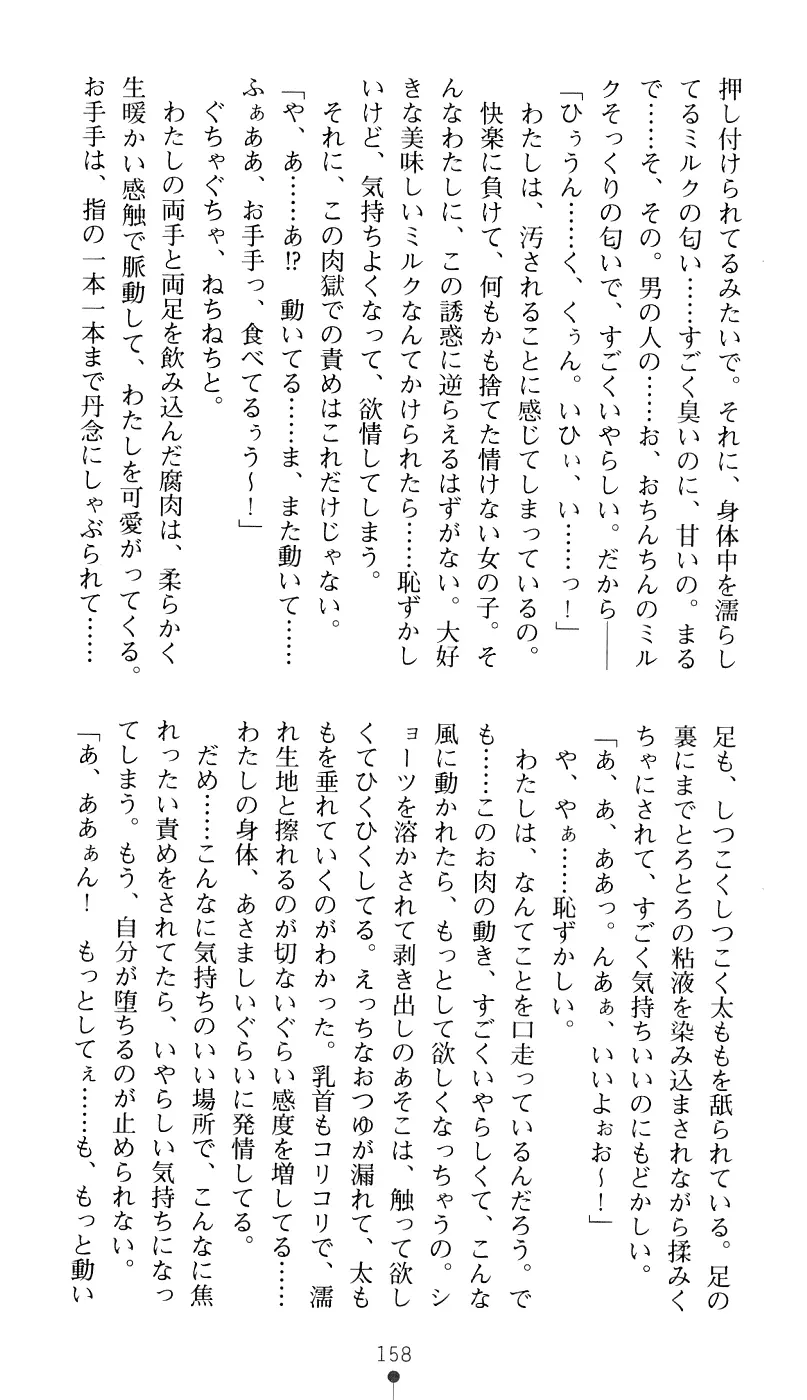 押し付けられてるみたいで。それに、身体中を濡らし
てるミルクの匂い……すごく臭いのに、甘いの。まる
で……そ、その。男の人の……お、おちんちんのミル
クそっくりの匂いで、すごくいやらしい。だから――
「ひぅうん……く、くぅん。いひぃ、い……っ！」
わたしは、汚されることに感じてしまっているの。
快楽に負けて、何もかも捨てた情けない女の子。そ
んなわたしに、この誘惑に逆らえるはずがない。大好
きな美味しいミルクなんてかけられたら……恥ずかし
いけど、気持ちよくなって、欲情してしまう。
それに、この肉獄での責めはこれだけじゃない。
「や、あ……あ!?　動いてる……ま、また動いて……
ふぁああ、お手手っ、食べてるぅう～！」
ぐちゃぐちゃ、ねちねちと。
わたしの両手と両足を飲み込んだ腐肉は、柔らかく
生暖かい感触で脈動して、わたしを可愛がってくる。
お手手は、指の一本一本まで丹念にしゃぶられて……
足も、しつこくしつこく太ももを舐られている。足の
裏にまでとろとろの粘液を染み込まされながら揉みく
ちゃにされて、すごく気持ちいいのにもどかしい。
「あ、あ、ああっ。んあぁ、いいよぉお～！」
や、やぁ……恥ずかしい。
わたしは、なんてことを口走っているんだろう。で
も……このお肉の動き、すごくいやらしくて、こんな
風に動かれたら、もっとして欲しくなっちゃうの。シ
ョーツを溶かされて剥き出しのあそこは、触って欲し
くてひくひくしてる。えっちなおつゆが漏れて、太も
もを垂れていくのがわかった。乳首もコリコリで、濡
れ生地と擦れるのが切ないぐらい感度を増してる……
わたしの身体、あさましいぐらいに発情してる。
だめ……こんなに気持ちのいい場所で、こんなに焦
れったい責めをされてたら、いやらしい気持ちになっ
てしまう。もう、自分が堕ちるのが止められない。
「あ、ああぁん！　もっとしてぇ……も、もっと動い
158